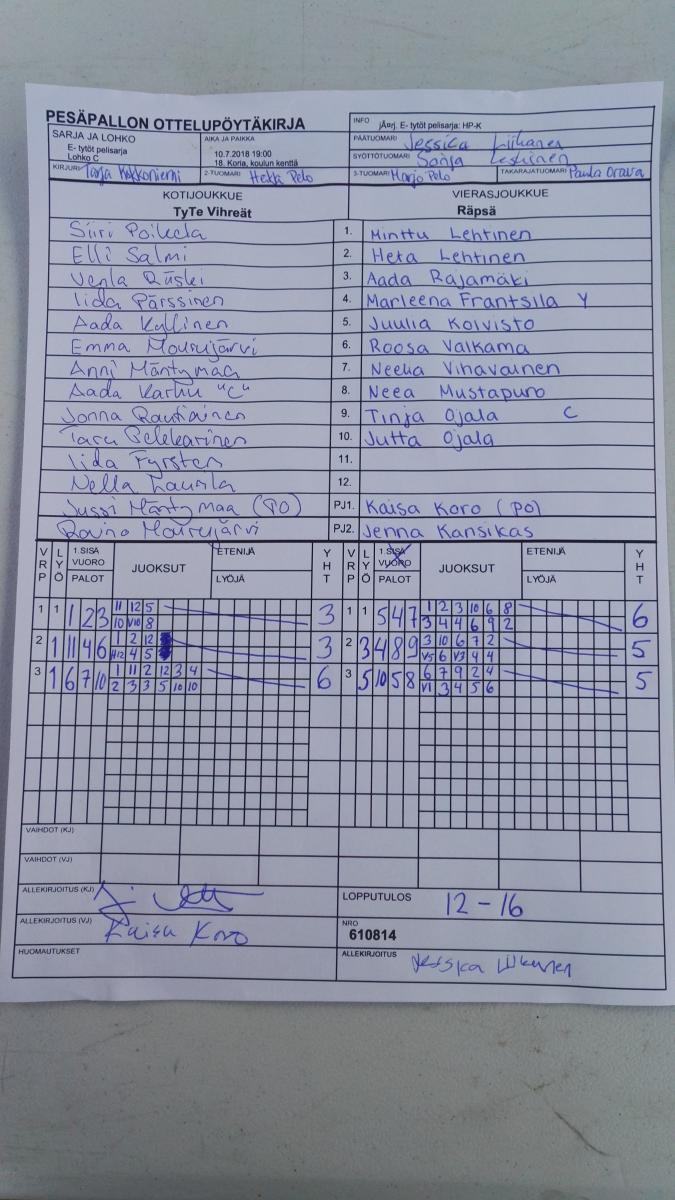 PESÄPALLON OTTELUPÖYTÄKIRJA
INFO jÄ¤rj. E- tytöt pelisarja: HP-K
SARJA JA LOHKO
E- tytöt pelisarja
Lohko C
AIKA JA PAIKKA
10.7.2018 19:00
18. Koria, koulun kenttä
PÄÄTUOMARI Jessica Liikanen
SYÖTTÖTUOMARI Sonja Leskinen
KIRJURI Tarja Kokkoniemi 2-TUOMARI Hekka Pelo 3-TUOMARI Marjo Pelo TAKARAJATUOMARI Paula Orava
KOTIJOUKKUE VIERASJOUKKUE
TyTe Vihreät Räpsä
Siiri Poikela 1. Minttu Lehtinen
Elli Salmi 2. Heta Lehtinen
Venla 3. Aada Rajamäki
Iida Pärssinen 4. Marleena Frantsila Y
Aada Kyllinen 5. Juulia Koivisto
Emma Mourujärvi 6. Roosa Valkama
Anni Mäntymaa 7. Neella Vihavainen
Aada Karhu "C" 8. Neea Mustapuro
Jonna Rautiainen 9. Tinja Ojala C
Taru Pelkkarinen 10. Jutta Ojala
Iida Fyrsten 11.
Nella Laurila 12.
Jussi Mäntymaa (PO) PJ1. Kaisa Koro (PO)
Raino Mourujärvi PJ2. Jenna Kansikas
VRP LYÖ 1.SISÄ VUORO PALOT JUOKSUT ETENIJÄ LYÖJÄ YHT VRP LYÖ 1.SISÄ VUORO PALOT JUOKSUT ETENIJÄ LYÖJÄ YHT
1 1 1 2 3 11 12 5 3 1 1 5 4 7 1 2 3 10 6 8 6
10 V10 8 3 4 4 6 9 2
2 1 11 4 6 1 2 12 3 2 3 4 8 9 3 10 6 7 2 5
4 5 V5 6 V3 4 4
3 1 6 7 10 1 11 2 12 3 4 6 3 5 10 5 8 6 7 9 2 4 5
2 3 3 5 10 10 V1 3 4 5 6
VAIHDOT (KJ)
VAIHDOT (VJ)
ALLEKIRJOITUS (KJ) LOPPUTULOS 12 - 16
ALLEKIRJOITUS (VJ) Kaisa Koro NRO 610814
HUOMAUTUKSET ALLEKIRJOITUS Jessica Liikanen